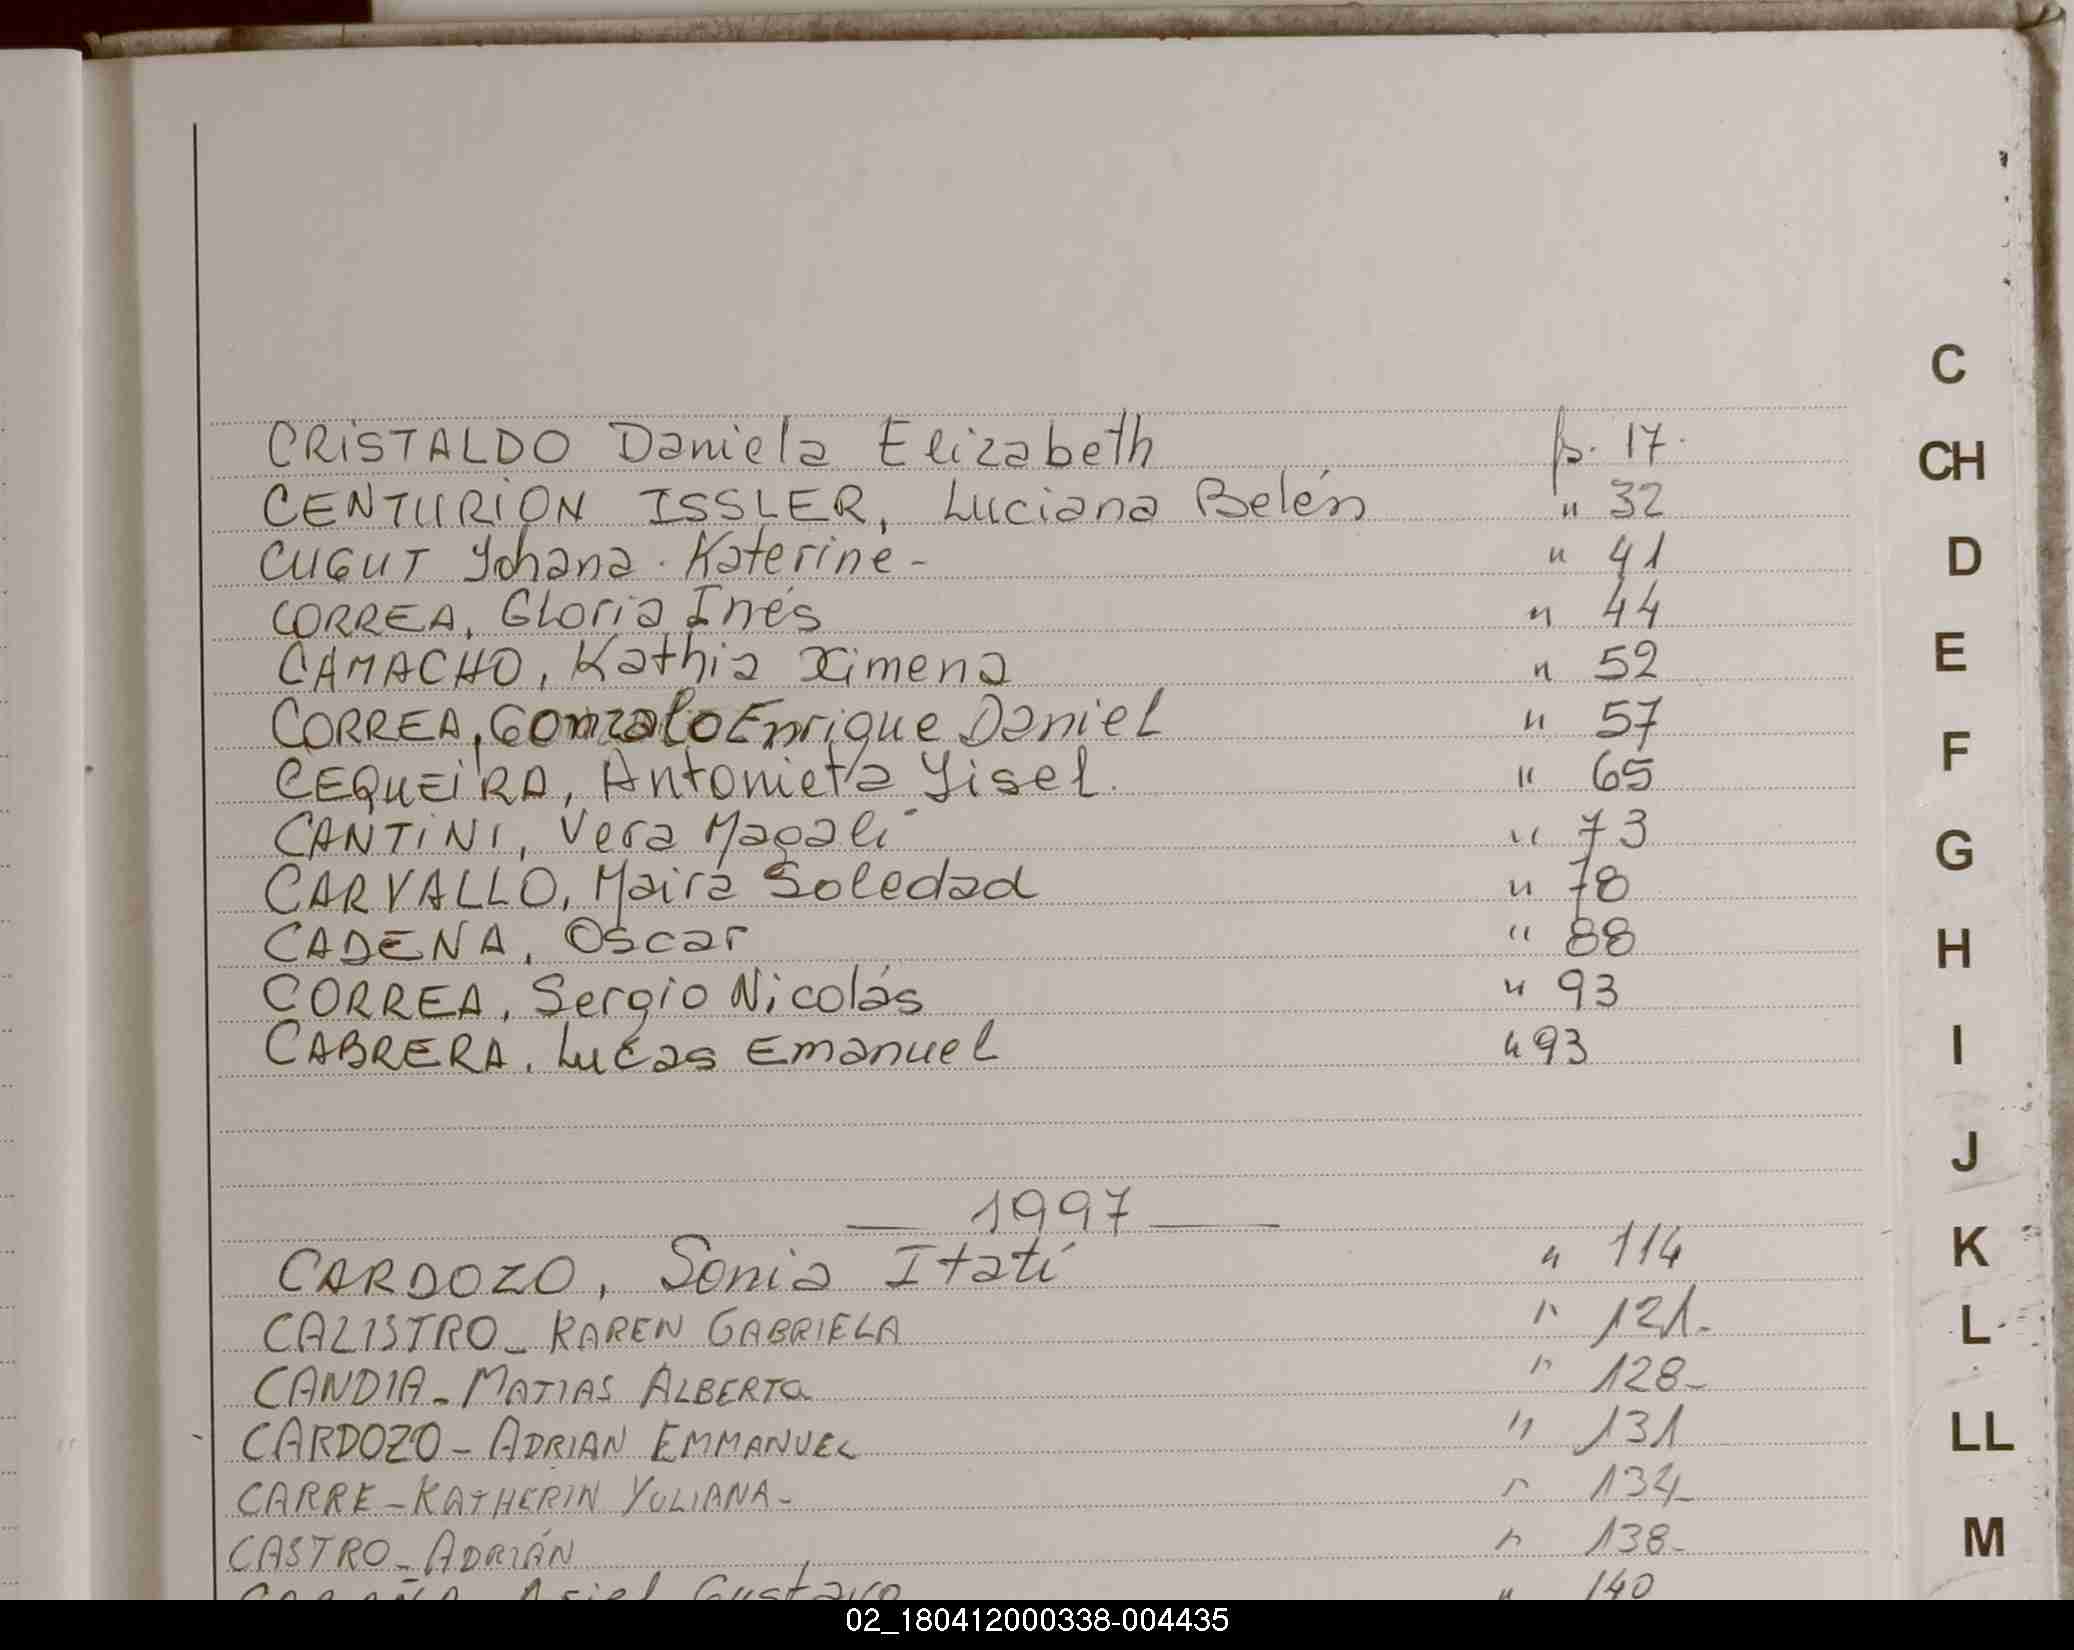 CRISTALDO Daniela Elizabeth fs. 17.
CENTURIÓN ISSLER, Luciana Belén " 32
CUGUT Yohana. Katerine - " 41
CORREA, Gloria Inés " 44
CAMACHO, Kathia Ximena " 52
CORREA, Gonzalo Enrique Daniel " 57
CEQUEIRA, Antonieta Yisel. " 65
CANTINI, Vera Magalí " 73
CARVALLO, Maira Soledad " 78
CADENA, Oscar " 88
CORREA, Sergio Nicolás " 93
CABRERA, Lucas Emanuel " 93
— 1997 —
CARDOZO, Sonia Itatí " 114
CALISTRO - KAREN GABRIELA " 121-
CANDIA - MATIAS ALBERTO " 128-
CARDOZO - ADRIAN EMMANUEL " 131
CARRE - KATHERIN YULIANA - " 134-
CASTRO - ADRIÁN " 138-
Ariel Gustavo " 140
C
CH
D
E
F
G
H
I
J
K
L
LL
M
02_180412000338-004435